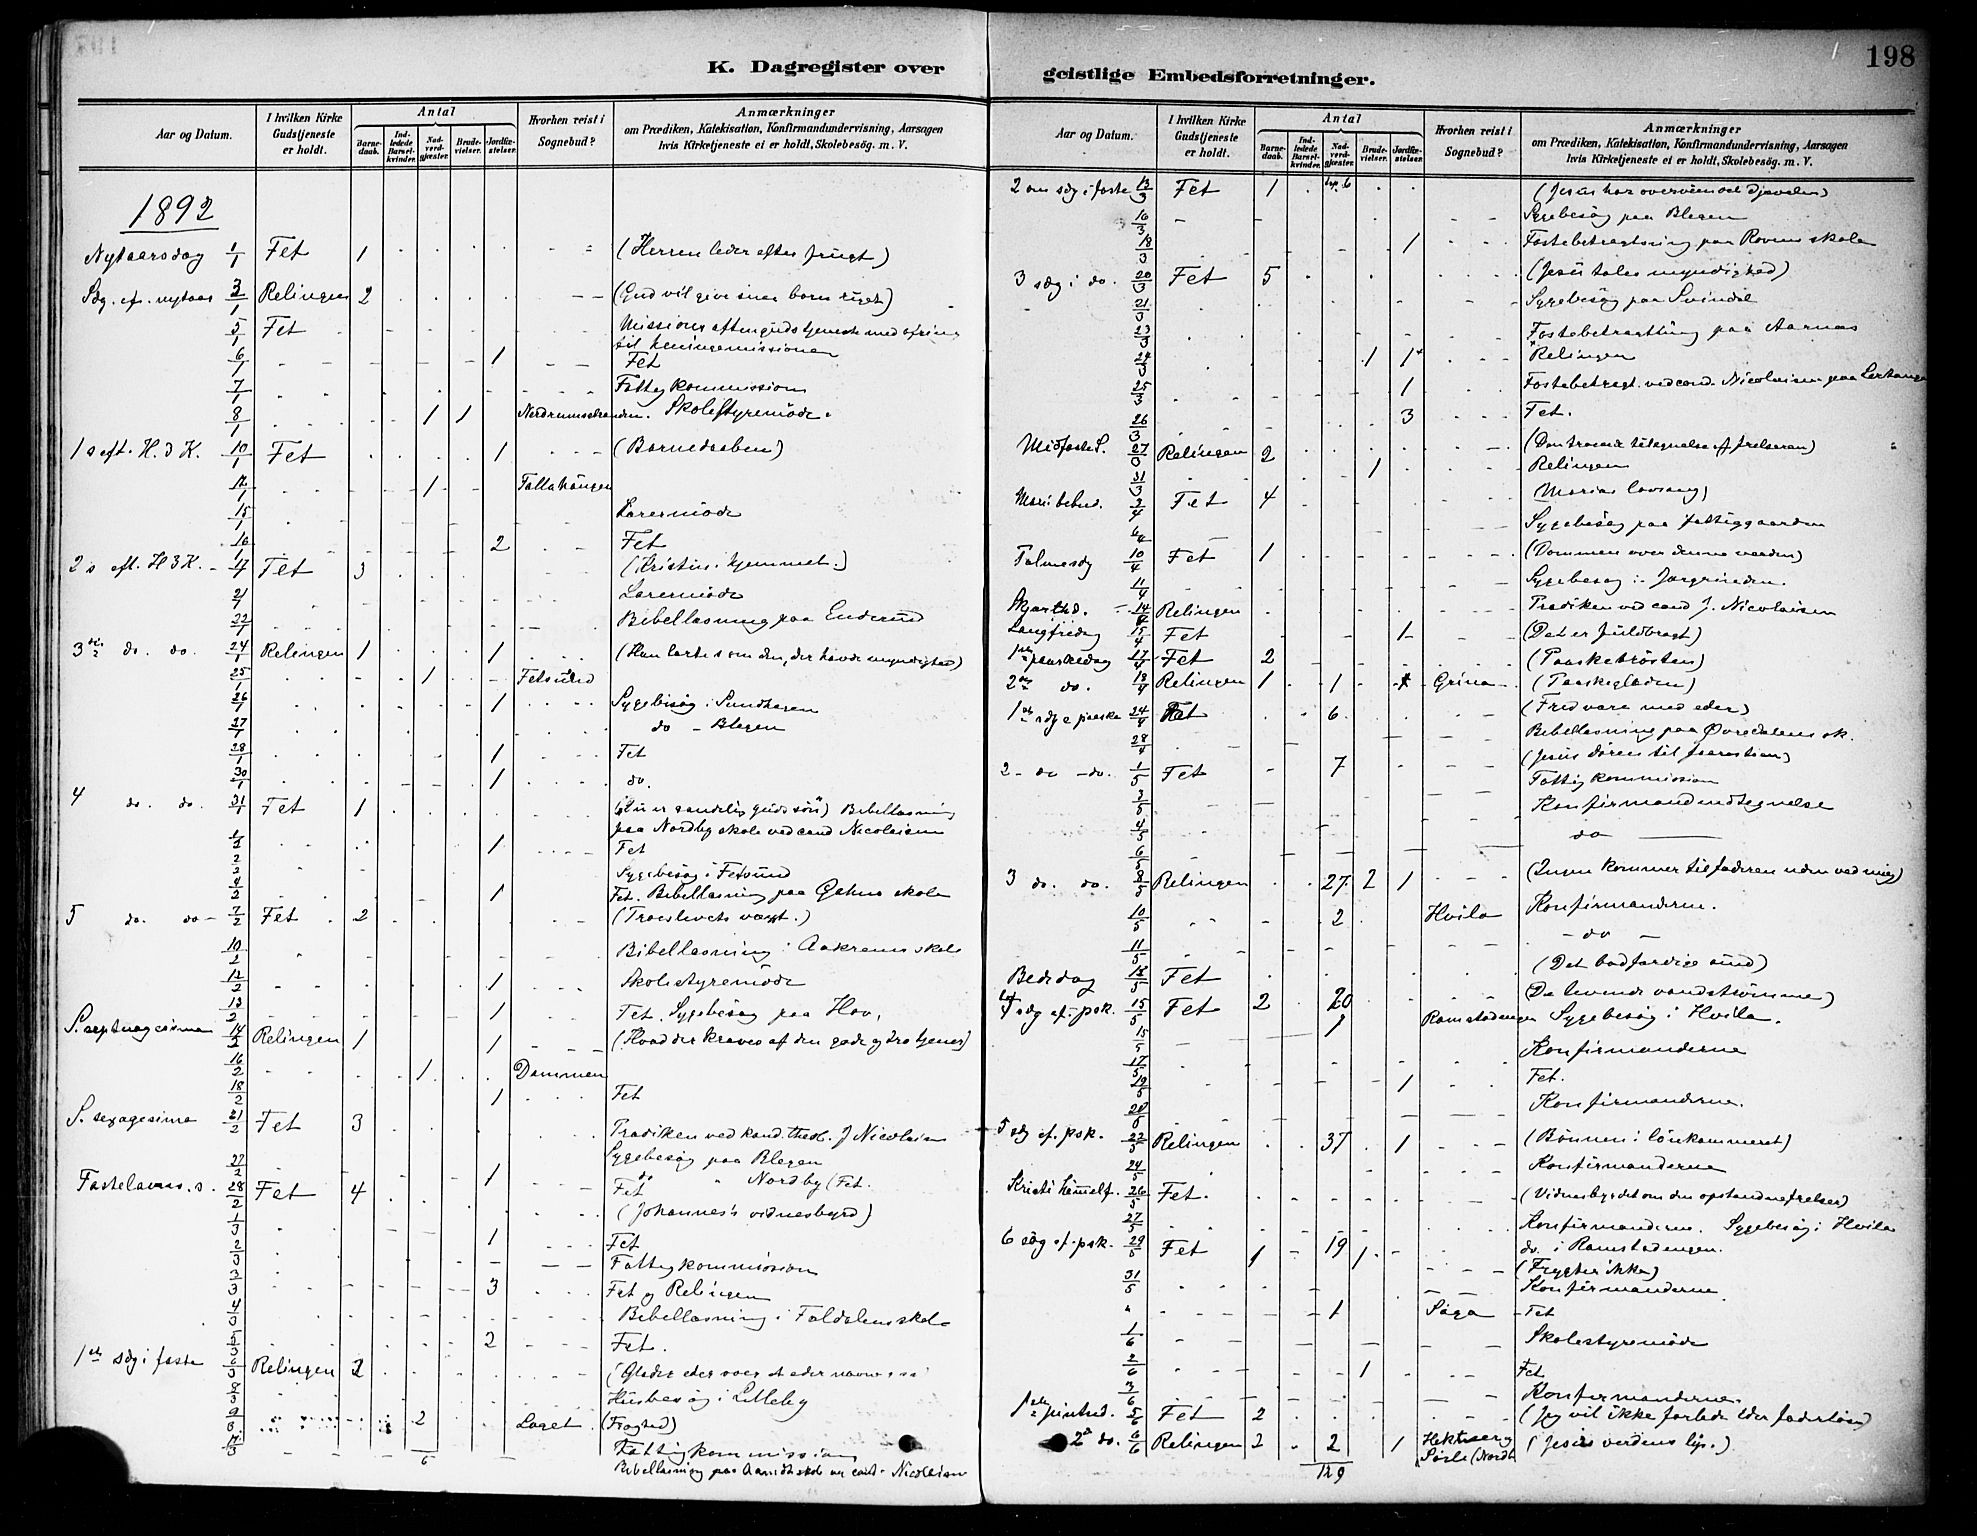 198
K. Dagregister over
Aar og Datum.
I hvilken Kirke Gudstjeneste er holdt.
Antal
Barnedaab.
Indledede Barselkvinder.
Nadverdgjester.
Brudevielser.
Jordfæstelser.
Hvorhen reist i Sognebud?
Anmærkninger
om Prædiken, Katekisation, Konfirmandundervisning, Aarsagen
hvis Kirketjeneste ei er holdt, Skolebesøg. m. V.
1892
Nytaarsdag 1/1 Fet 1 (Herren leder efter frugt)
Søg. ef. nytaar 3/1 Relingen 2 (Gud vil give sine børn riget)
5/1 Fet
til hedningemissionen
6/1 1 Fet
7/1 Fattigkommission
8/1 1 1 Skolestyremøde.
1 s eft. H. 3 K. 10/1 Fet 1 (Barnedaaben)
12/1 1
15/1 Lærermøde
16/1 2 Fet
2 s eft. H 3 K. 17/1 Fet 3 (Kristus i hjemmet.)
21/1 Lærermøde
22/1 Bibellæsning paa Enderud
3die do. do. 24/1 Relingen 1 1 (Han lærte som den, der havde myndighed)
25/1 1 Fetsund
26/1 1 Sygebesøg i Sundhagen
27/1 do - Blegen
28/1 1 Fet
30/1 1 do.
4 do. do. 31/1 Fet 1 Bibellæsning
paa Nordby skole ved cand Nicolaisen
1/2 1 Fet
2/2 Sygebesøg i Fetsund
4/2 1 Fet. Bibellæsning paa skole
5 do. do - 7/2 Fet 2 (Troeslivets vægt.)
10/2 Bibellæsning i skole
12/2 1 Skolestyremøde
13/2 1 Fet. Sygebesøg paa Hov,
S. septuagesima 14/2 Relingen 1 1 (Hvad der kræves af den gode og tro tjener)
16/2 1 Dammen
18/2 1 Fet
S. sexagesima 21/2 Fet 3 Prædiken ved kand. theol. J Nicolaisen
Sygebesøg paa Blegen
27/2 1 do " Nordby (Fet.
Fastelavns. s. 28/2 Fet 4 Fet
(Johannes's vidnesbyrd)
1/3 1 Fet
2/3 Fattigkommission
3/3 3 Fet og Relingen
4/3 Bibellæsning i Faldalens skole
5/3 2 Fet.
1ste søg i faste 6/3 Relingen 2 (Glæder eder over at eder navne
8/3 Husbesøg i Lilleby
9/3 2
Fattigkommission
6 Bibellæsning paa skole ved cand. Nicolaisen
geistlige Embedsforretninger.
Aar og Datum.
I hvilken Kirke Gudstjeneste er holdt.
Antal
Barnedaab.
Indledede Barselkvinder.
Nadverdgjester.
Brudevielser.
Jordfæstelser.
Hvorhen reist i Sognebud?
Anmærkninger
om Prædiken, Katekisation, Konfirmandundervisning, Aarsagen
hvis Kirketjeneste ei er holdt, Skolebesøg. m. V.
2 søg i faste 13/3 Fet 1 6 (Jesus har overvundet Djævelen)
16/3 Sygebesøg paa Blegen
18/3 1 Fastebetragtning paa Rovens skole
3 søg i do. 20/3 Fet 5 (Jesu tales myndighed)
21/3 Sygebesøg paa Svindal
23/3 Fastebetragtning paa Aarnæs
24/3 1 1 Relingen
25/3 1 Fastebetragt. ved cand. Nicolaisen paa
26/3 3 Fet.
Midfaste S. 27/3 Relingen 2
31/3 1 Relingen
Mari bebud. 3/4 Fet 4 (Marias lovsang)
6/4 Sygebesøg paa fattiggaarden
Palmesøg 10/4 Fet 1 (Dommen over denne verden)
11/4 Sygebesøg i
Skjærthd. 14/4 Relingen Prædiken ved cand J. Nicolaisen
Langfredag 15/4 Fet 1 (Det er fuldbragt)
1ste paaskedag 17/4 Fet 2 (Paasketrøsten)
2den do. 18/4 Relingen 1 1 (Paaskeglæden)
1ste søg e paaske 24/4 Fet 6 (Fred være med eder)
28/4 Bibellæsning paa Øvredalens sk.
2 - do - do. 1/5 Fet 7
Fattigkommission
3/5 Konfirmandindtegnelse
4/5 do
6/5
3 do. do. 8/5 Relingen 27 2 1 (Ingen kommer til faderen uden ved mig)
10/5 2 Hvila Konfirmanderne.
11/5 - do -
Bededag 13/5 Fet (Det bodfærdige sind)
4 søg ef. psk. 15/5 Fet 2 20 (De levende vandstrømme)
15/5 1 Ramstadengen Sygebesøg i Hvila.
17/5 Konfirmanderne
19/5 1 Fet.
20/5 Konfirmanderne.
5 søg ef. psk. 22/5 Relingen 37 1 (Bønnen i lønkammeret)
24/5 Konfirmanderne
Kristi himmelf. 26/5 Fet. (Vidnesbyrdet om den opstandne frelser)
27/5 Konfirmanderne. Sygebesøg i Hvila
6 søg ef. psk. 29/5 Fet 1 19 1 do. i Ramstadengen.
(Frygter ikke)
31/5 Konfirmanderne
" 1 Fet
1/6 Skolestyremøde
2/6 1 Fet
3/6 Konfirmanderne.
1ste pintsd. 5/6 Fet 2 (Jeg vil ikke forlade eder faderløse)
2d do. 6/6 Relingen 2 2 1 (Jesus verdens lys.)
129